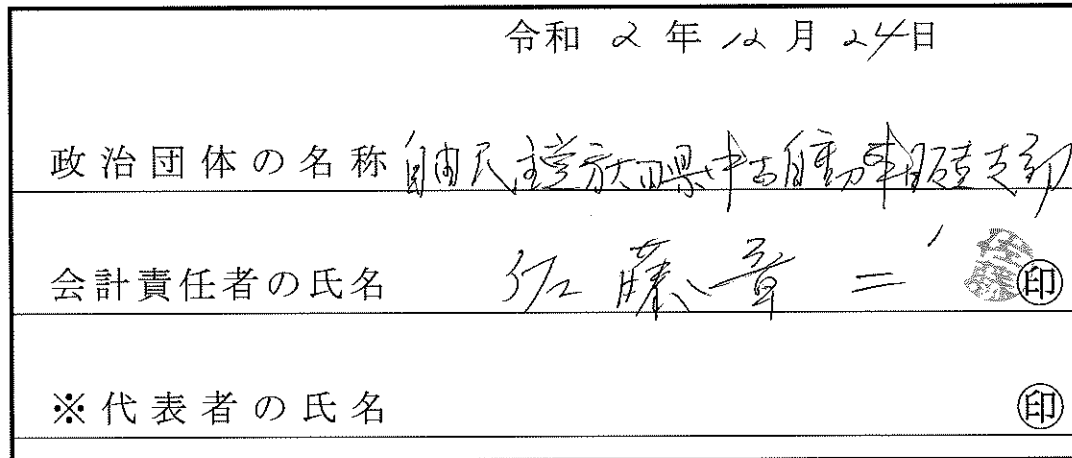 令和 2 年 12 月 24日
政治団体の名称 自由民主党秋田県中古自動車販売支部
会計責任者の氏名 佐藤章二 佐藤 ㊞
※代表者の氏名 ㊞